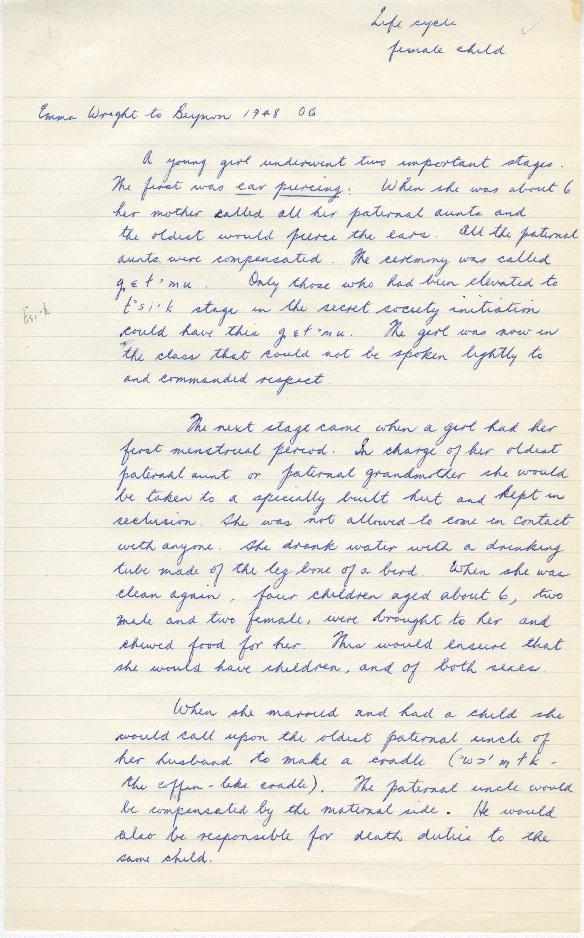 Life cycle
female child
Emma Wright to Beynon 1948 OG
A young girl underwent two important stages.
The first was ear piercing. When she was about 6
her mother called all her paternal aunts and
the oldest would pierce the ears. All the paternal
aunts were compensated. The ceremony was called
gɛt'mu. Only those who had been elevated to
t'si·k stage in the secret society initiation
could have this gɛt'mu. The girl was now in
the class that could not be spoken lightly to
and commanded respect.
The next stage came when a girl had her
first menstrual period. In charge of her oldest
paternal aunt or paternal grandmother she would
be taken to a specially built hut and kept in
seclusion. She was not allowed to come in contact
with anyone. She drank water with a drinking
tube made of the leg bone of a bird. When she was
clean again, four children aged about 6, two
male and two female, were brought to her and
chewed food for her. This would ensure that
she would have children, and of both sexes.
When she married and had a child she
would call upon the oldest paternal uncle of
her husband to make a cradle ('wɔ'mɨk -
the coffin-like cradle). The paternal uncle would
be compensated by the maternal side. He would
also be responsible for death duties to the
same child.